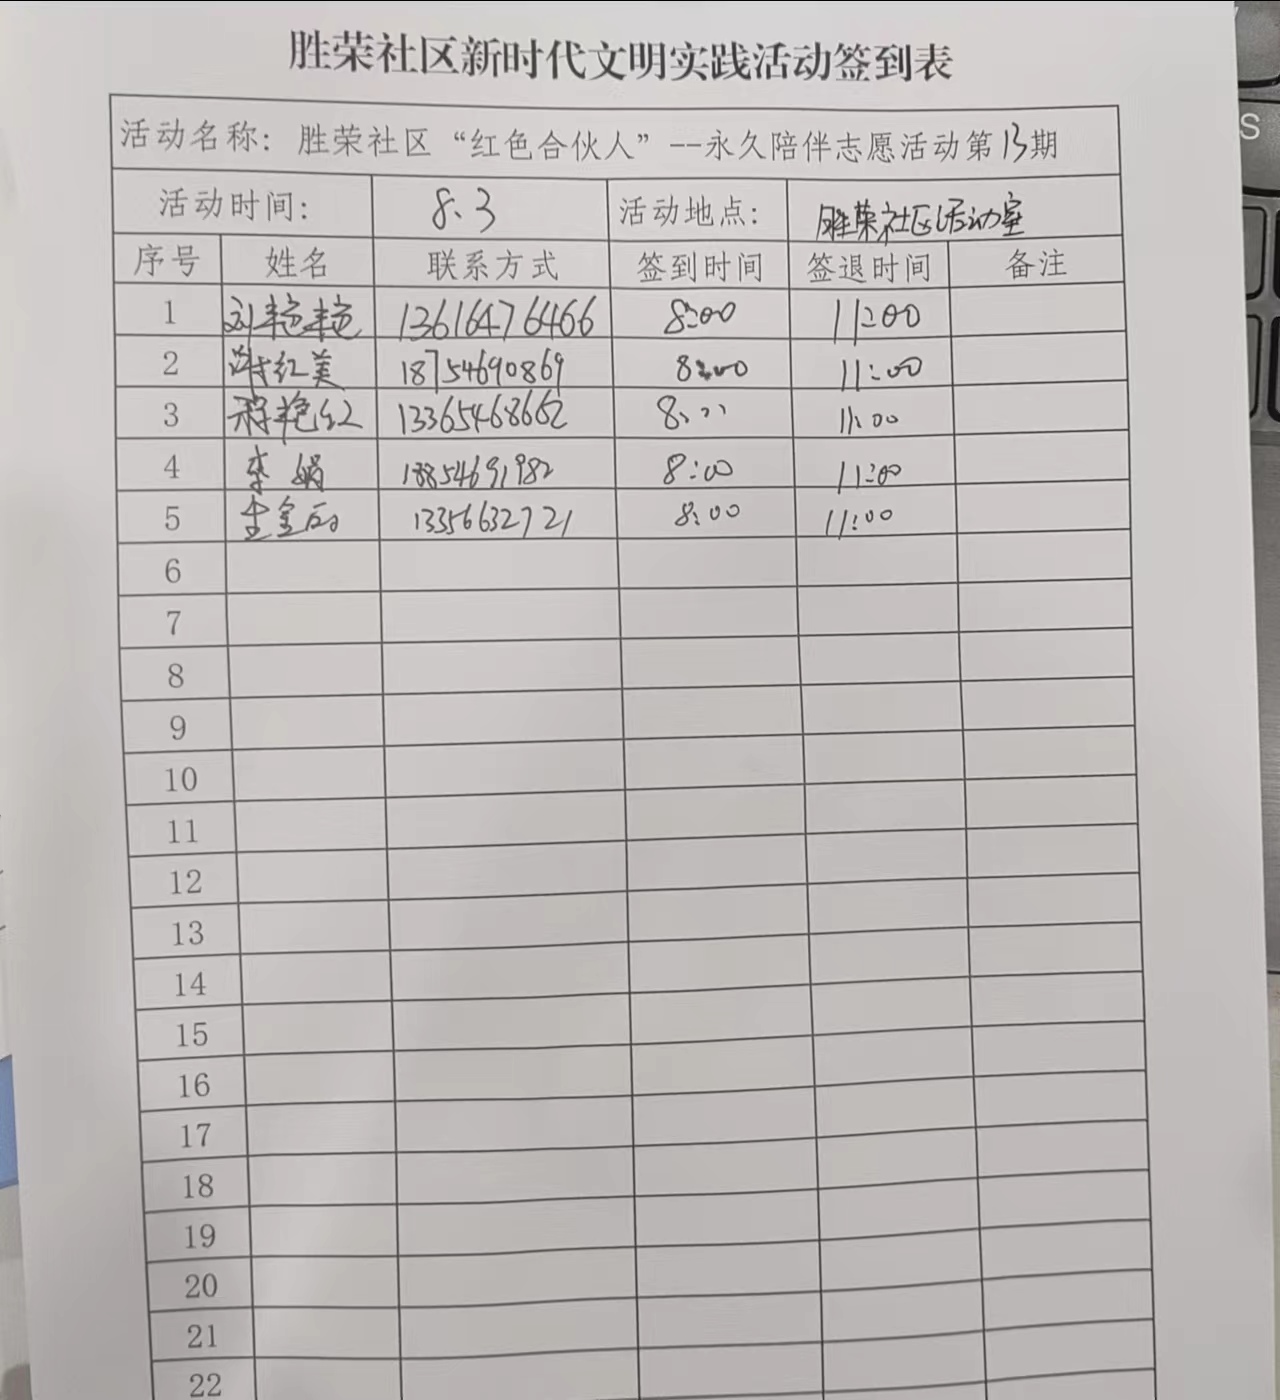 胜荣社区新时代文明实践活动签到表
活动名称：胜荣社区“红色合伙人”--永久陪伴志愿活动第13期
活动时间： 8.3 活动地点： 胜荣社区活动室
序号 姓名 联系方式 签到时间 签退时间 备注
1 刘艳艳 13616476466 8:00 11:00
2 红美 18754690869 8:00 11:00
3 艳红 13365468662 8:00 11:00
4 李娟 18854691982 8:00 11:00
5 13356632721 8:00 11:00
6
7
8
9
10
11
12
13
14
15
16
17
18
19
20
21
22
S